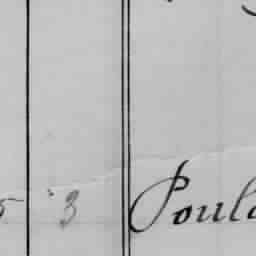 5 3 Poul